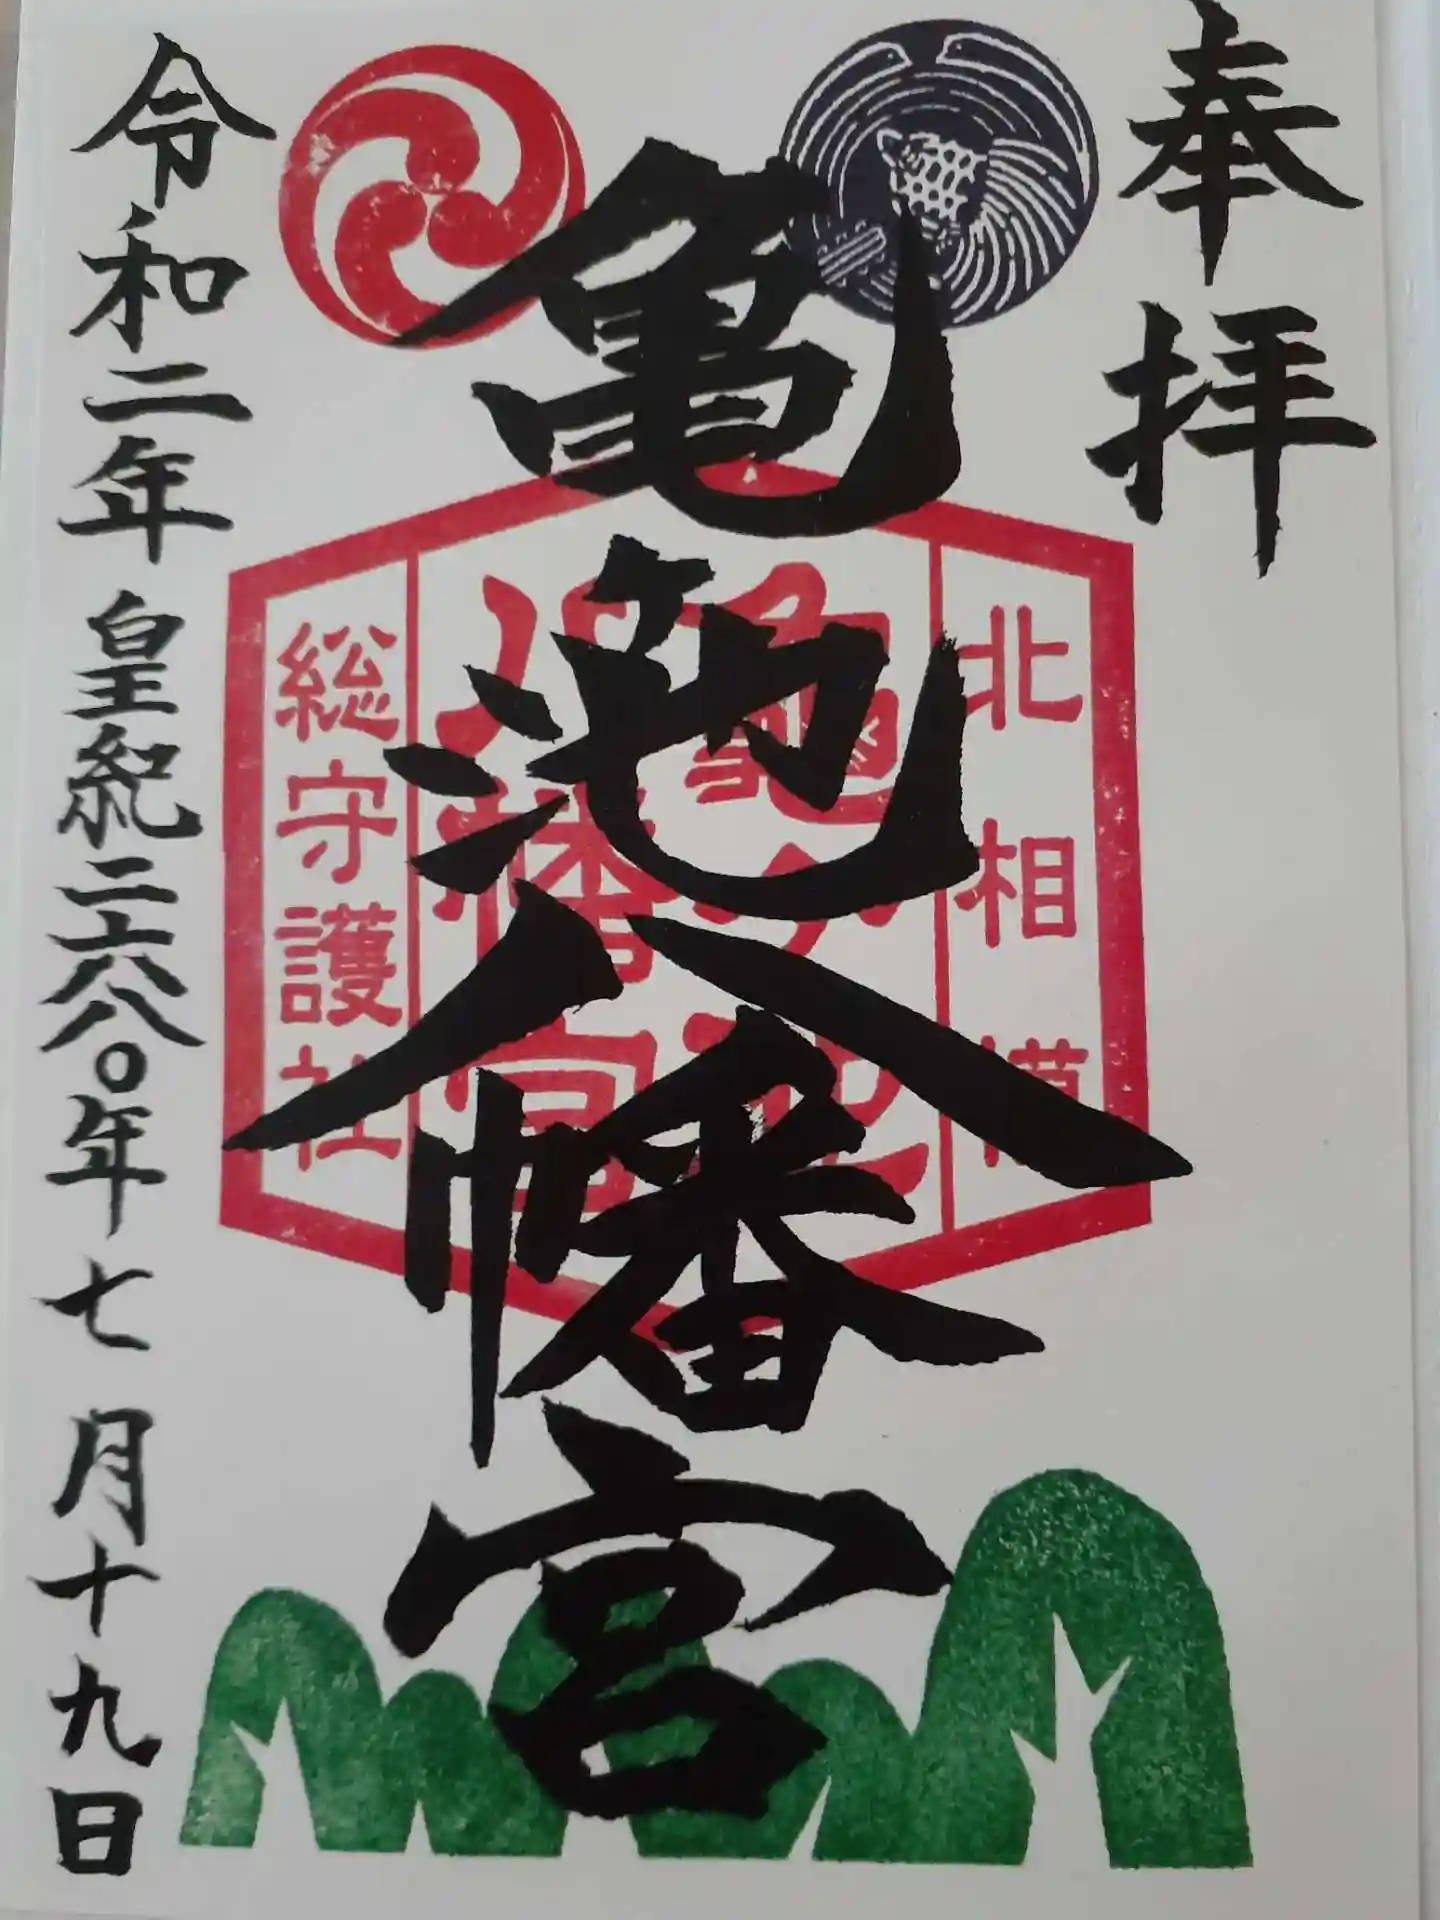 奉拝
亀池八幡宮
北相模
亀ヶ池
八幡宮
総守護社
令和二年皇紀二六八〇年七月十九日